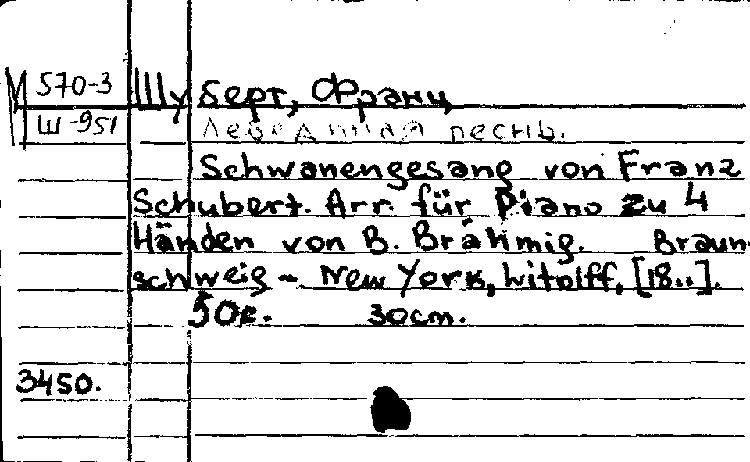 М 570-3 Шуберт, Франц
Ш-951 Лебединая песнь.
Schwanengesang von Franz
Schubert. Arr. für Piano zu 4
Händen von B. Brähmig. Braun-
schweig - New York, Litolff, [18..].
50с. 30cm.
3450.